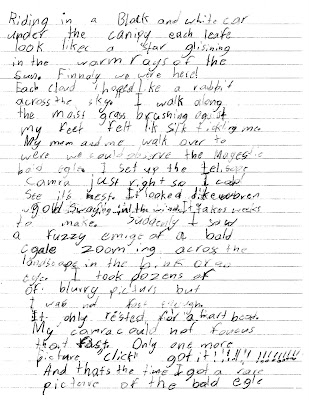 Riding in a Black and white car
under the canipy each leafe
look likes a star glisining
in the warm rays of the
Sun. Finnaly we were here!
Each cloud hopped like a rabbit
across the sky. I walk along
the moist grass brushing against
my feet felt lik silk tickling me.
My mom and me walk over to
were we could observe the Magestic
bald egle. I set up the
camra just right so I could
See it's nest. It looked like woven
gold swaying in the wind. It takes weeks
to make. Suddenly I saw
a fuzzy emige of a bald
egale zoom'ing across the
landscape in the
eye. I took dozens of
of blurry picturs but
I was not fast enough.
It only rested for a heart beat.
My camra could not foucus
that fast. Only one more
picture, click got it!!!!!!!!!!!!!!!
And thats the time I got a rare
pictoire of the bald egle